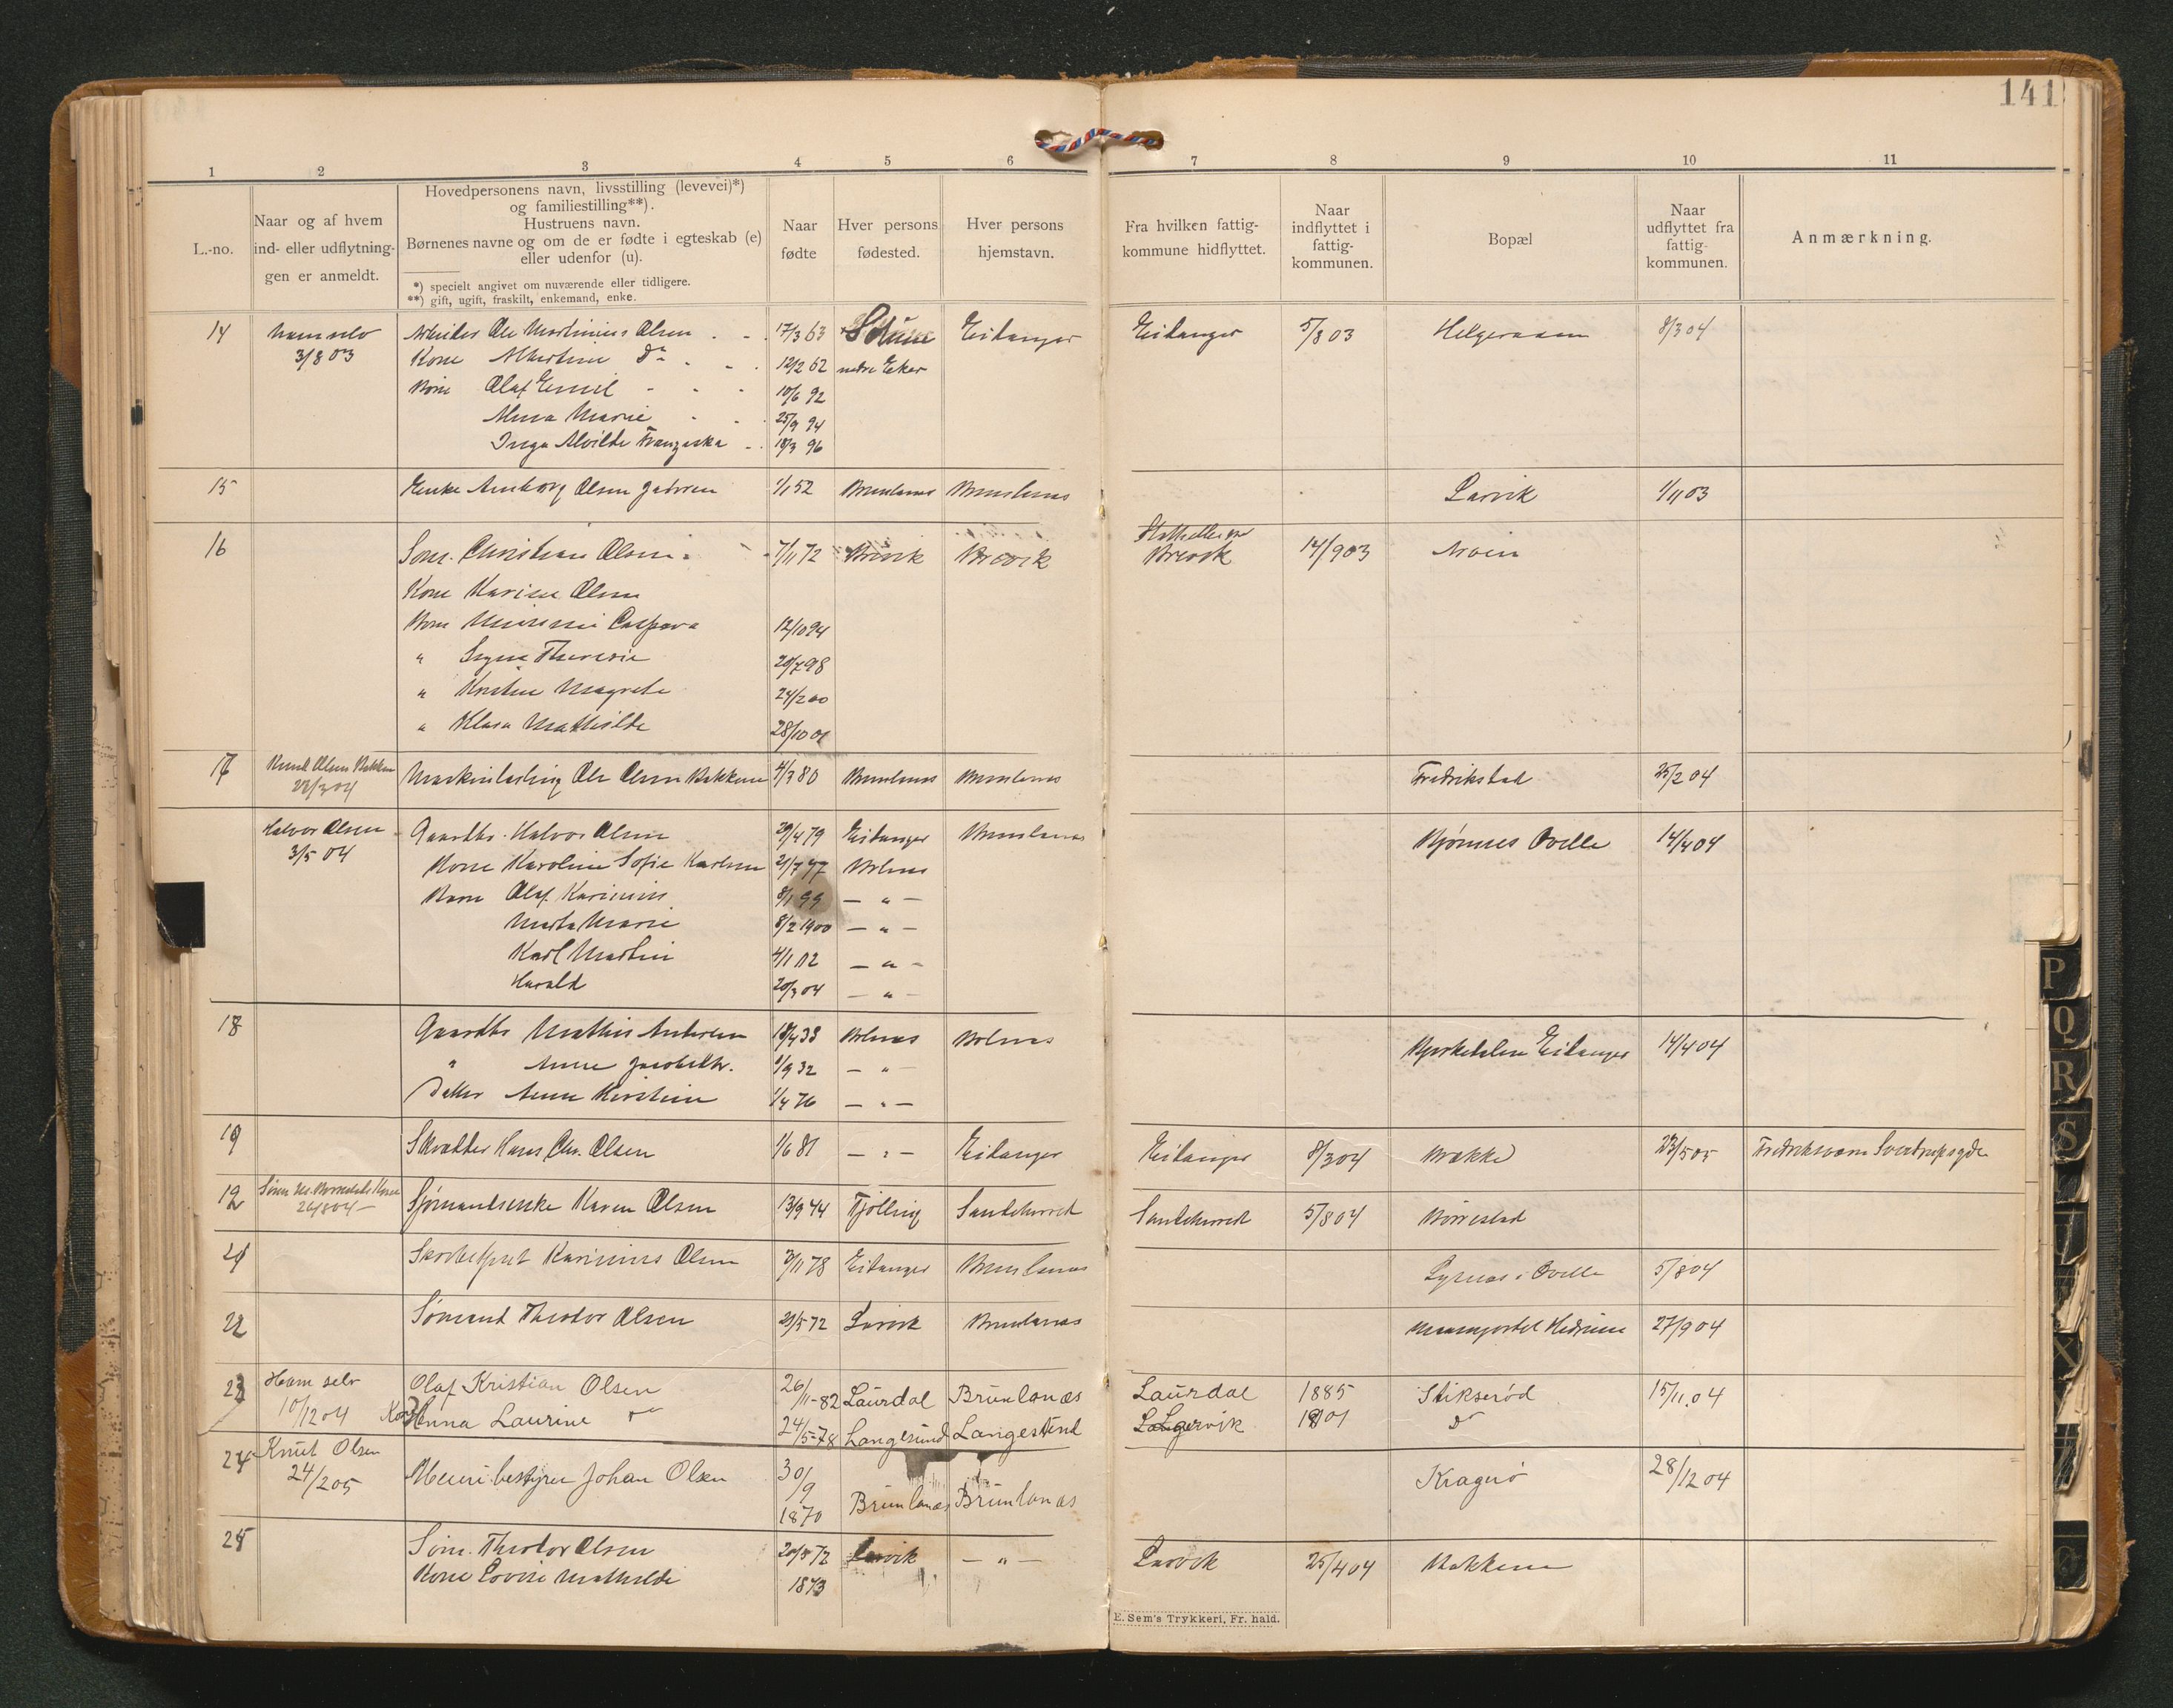 141
1 2 3 4 5 6 7 8 9 10 11
L.-no.
Naar og af hvem
ind- eller udflytning-
gen er anmeldt.
Hovedpersonens navn, livsstilling (levevei)*)
og familiestilling**).
Hustruens navn.
Børnenes navne og om de er fødte i egteskab (e)
eller udenfor (u).
*) specielt angivet om nuværende eller tidligere.
**) gift, ugift, fraskilt, enkemand, enke.
Naar
fødte
Hver persons
fødested.
Hver persons
hjemstavn.
Fra hvilken fattig-
kommune hidflyttet.
Naar
indflyttet i
fattig-
kommunen.
Bopæl
Naar
udflyttet fra
fattig-
kommunen.
Anmærkning.
14 Ham selv Arbeider Ole Martinius Olsen 17/3 63 Solum Eidanger Eidanger 5/8 03 Helgeraaen 8/3 04
3/8 03 Kone Albertine Do 12/2 62 nedre Eker
Børn Olaf Emil 10/6 92
Anna Marie 25/9 94
Inga Alvilde Franzeska 18/3 96
15 Enke Anborg Olsen 1/1 52 Brunlanæs Brunlanæs Larvik 1/11 03
16 Søm. Christian Olsen 7/11 72 Brevik Brevik Brevik 14/9 03
Kone Karine Olsen
Børn Caspara 12/10 94
" Signe Theresie 20/7 98
" Kristine Magrete 24/2 00
" Klara Mathilde 28/10 01
17 Knud Olsen Bakken Maskinlærling Ole Olsen Bakkene 4/3 80 Brunlanæs Brunlanæs Fredrikstad 25/2 04
22/3 04
Halvor Olsen Gaardbr. Halvor Olsen 29/4 79 Eidanger Brunlanæs Bjønnes Qvelle 14/4 04
3/5 04
Kone Karoline Sofie Karlsen 21/7 77 Brlnæs
Børn Olaf Karinius 8/1 99 — " —
Marta Marie 8/2 1900 — " —
Karl Martin 4/1 02 — " —
Harald 20/3 04 — " —
18 Gaardbr Mathis Andersen 18/4 33 Brlnæs Brlnæs Bjørkedalen Eidanger 14/4 04
" Anne Jacobsdtr. 1/9 32 — " —
Datter Anne Kirstine 1/4 76 — " —
19 Skrædder Hans Chr. Olsen 1/6 81 — " — Eidanger Eidanger 8/3 04 Brække 23/5 05 Fredriksværn
12 Sjømandsenke Karen Olsen 13/9 44 Tjølling Sandeherred Sandeherred 5/8 04 Børrestad
24/8 04
21 Karinius Olsen 2/11 78 Eidanger Brunlanæs i Qvelle 5/8 04
22 Sømand Theodor Olsen 20/5 72 Larvik Brunlanæs Hedrum 27/9 04
23 Ham selv Olaf Kristian Olsen 26/11-82 Laurdal Brunlanæs Laurdal 1885 Stikserød 15/11.04
10/12 04 Kone Anna Laurine do 24/5-78 Langesund Langesund Larvik 1901 do
24 Knut Olsen Meieribestyrer Johan Olsen 30/9 1870 Brunlanæs Brunlanæs Kragerø 28/12 04
24/2 05
25 Søm. Theodor Olsen 20/5 72 Larvik — " — Larvik 25/4 04 Bakkene
Kone Lovise Mathilde 1873
E. Sem's Trykkeri, Fr. hald.
P
Q
R
S
U
X